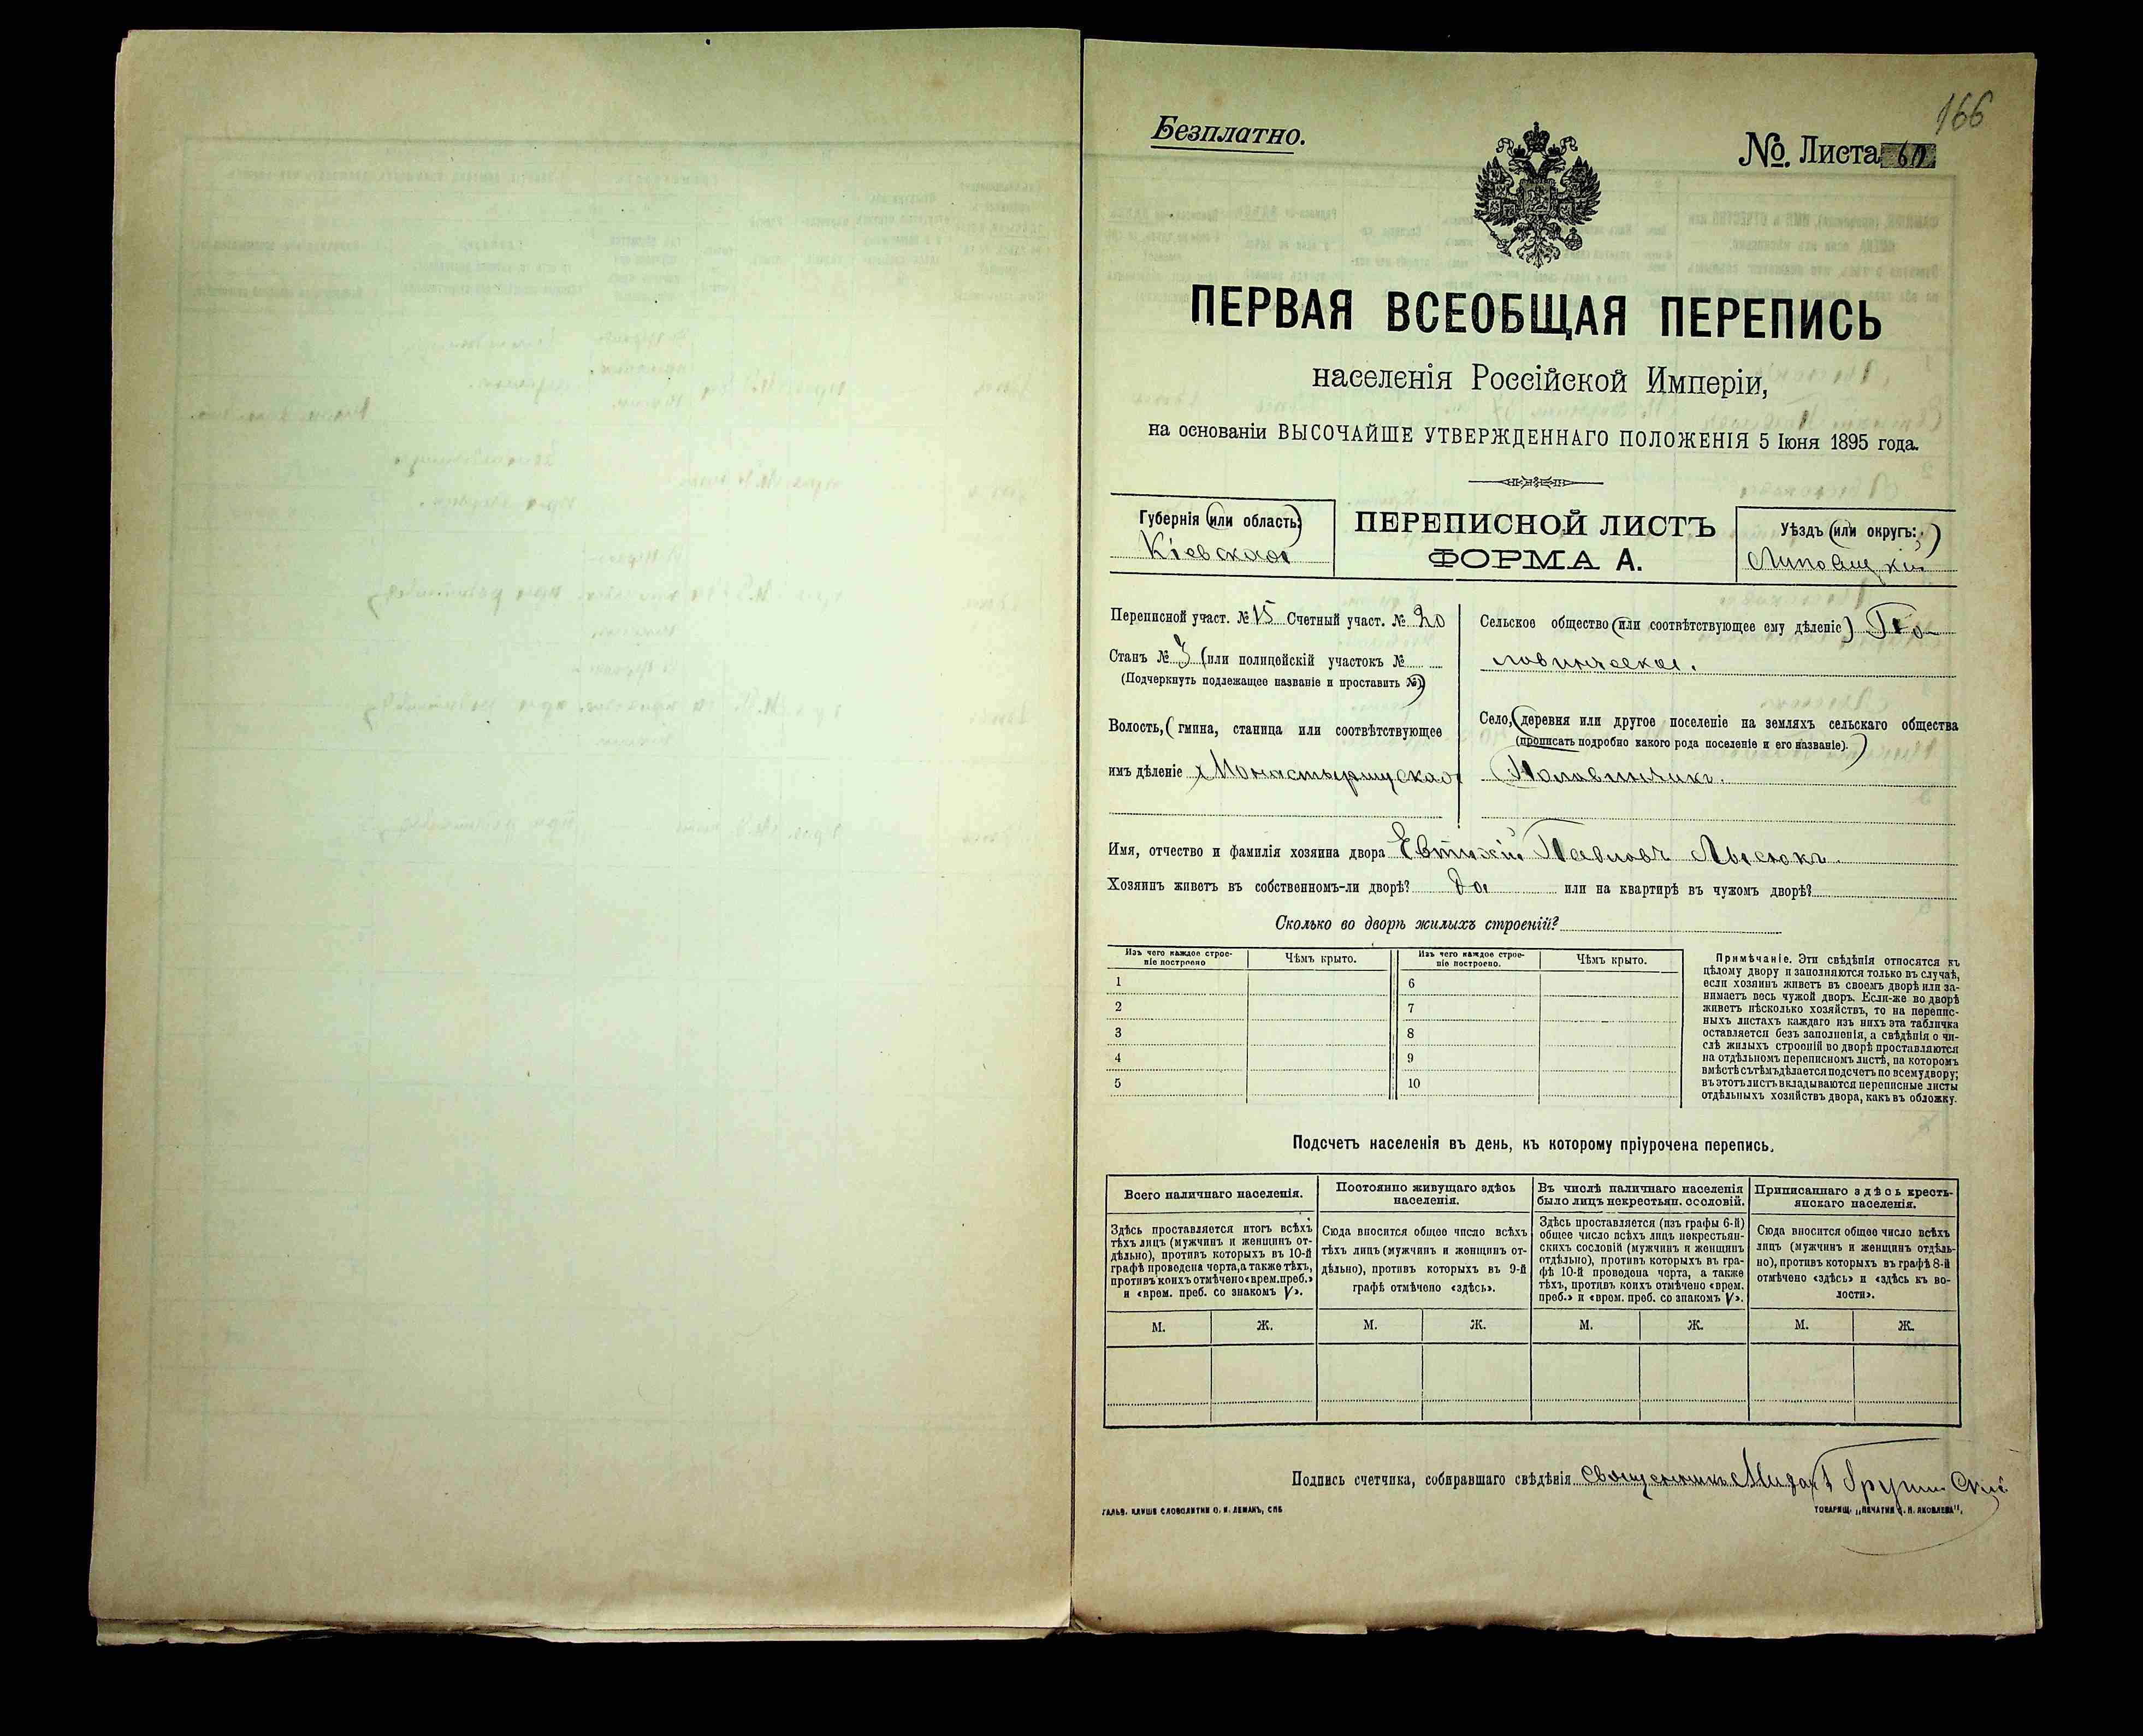 166
Безплатно.
№. Листа 60
ПЕРВАЯ ВСЕОБЩАЯ ПЕРЕПИСЬ
населенія Россійской Имперіи,
на основаніи ВЫСОЧАЙШЕ УТВЕРЖДЕННАГО ПОЛОЖЕНІЯ 5 Іюня 1895 года.
Губернія (или область:)
Кіевская
ПЕРЕПИСНОЙ ЛИСТЪ
ФОРМА А.
Уѣздъ (или округъ:)
Липовецкій
Переписной участ. № 15 Счетный участ. № 20
Станъ № 3 (или полицейскій участокъ №
(Подчеркнуть подлежащее названіе и проставить №)
Волость, (гмина, станица или соотвѣтствующее
имъ дѣленіе) Монастырищская
Сельское общество (или соотвѣтствующее ему дѣленіе) По-
ловинчское.
Село, (деревня или другое поселеніе на земляхъ сельскаго общества
(прописать подробно какого рода поселеніе и его названіе).)
Половинчикъ.
Имя, отчество и фамилія хозяина двора Евтихій Павловъ Лысюкъ.
Хозяинъ живетъ въ собственномъ-ли дворѣ? да или на квартирѣ въ чужомъ дворѣ?
Сколько во дворѣ жилыхъ строеній?
Изъ чего каждое строе-
ніе построено
Чѣмъ крыто.
Изъ чего каждое строе-
ніе построено.
Чѣмъ крыто.
1 6
2 7
3 8
4 9
5 10
Примѣчаніе. Эти свѣдѣнія относятся къ
цѣлому двору и заполняются только въ случаѣ,
если хозяинъ живетъ въ своемъ дворѣ или за-
нимаетъ весь чужой дворъ. Если-же во дворѣ
живетъ нѣсколько хозяйствъ, то на перепис-
ныхъ листахъ каждаго изъ нихъ эта табличка
оставляется безъ заполненія, а свѣдѣнія о чи-
слѣ жилыхъ строеній во дворѣ проставляются
на отдѣльномъ переписномъ листѣ, на которомъ
вмѣстѣ съ тѣмъ дѣлается подсчетъ по всему двору;
въ этотъ листъ вкладываются переписные листы
отдѣльныхъ хозяйствъ двора, какъ въ обложку.
Подсчетъ населенія въ день, къ которому пріурочена перепись.
Всего наличнаго населенія.
Здѣсь проставляется итогъ всѣхъ
тѣхъ лицъ (мужчинъ и женщинъ от-
дѣльно), противъ которыхъ въ 10-й
графѣ проведена черта, а также тѣхъ,
противъ коихъ отмѣчено «врем. преб.»
и «врем. преб. со знакомъ V».
Постоянно живущаго здѣсь
населенія.
Сюда вносится общее число всѣхъ
тѣхъ лицъ (мужчинъ и женщинъ от-
дѣльно), противъ которыхъ въ 9-й
графѣ отмѣчено «здѣсь».
Въ числѣ наличнаго населенія
было лицъ некрестьян. сословій.
Здѣсь проставляется (изъ графы 6-й)
общее число всѣхъ лицъ некрестьян-
скихъ сословій (мужчинъ и женщинъ
отдѣльно), противъ которыхъ въ гра-
фѣ 10-й проведена черта, а также
тѣхъ, противъ коихъ отмѣчено «врем.
преб.» и «врем. преб. со знакомъ V».
Приписаннаго здѣсь кресть-
янскаго населенія.
Сюда вносится общее число всѣхъ
лицъ (мужчинъ и женщинъ отдѣль-
но), противъ которыхъ въ графѣ 8-й
отмѣчено «здѣсь» и «здѣсь къ во-
лости».
М. Ж. М. Ж. М. Ж. М. Ж.
Подпись счетчика, собиравшаго свѣдѣнія священникъ
ГАЛЬВ. КЛИШЕ СЛОВОЛИТНИ О. И. ЛЕМАНЪ, СПБ
ТОВАРИЩ. „ПЕЧАТНЯ С. П. ЯКОВЛЕВА“.